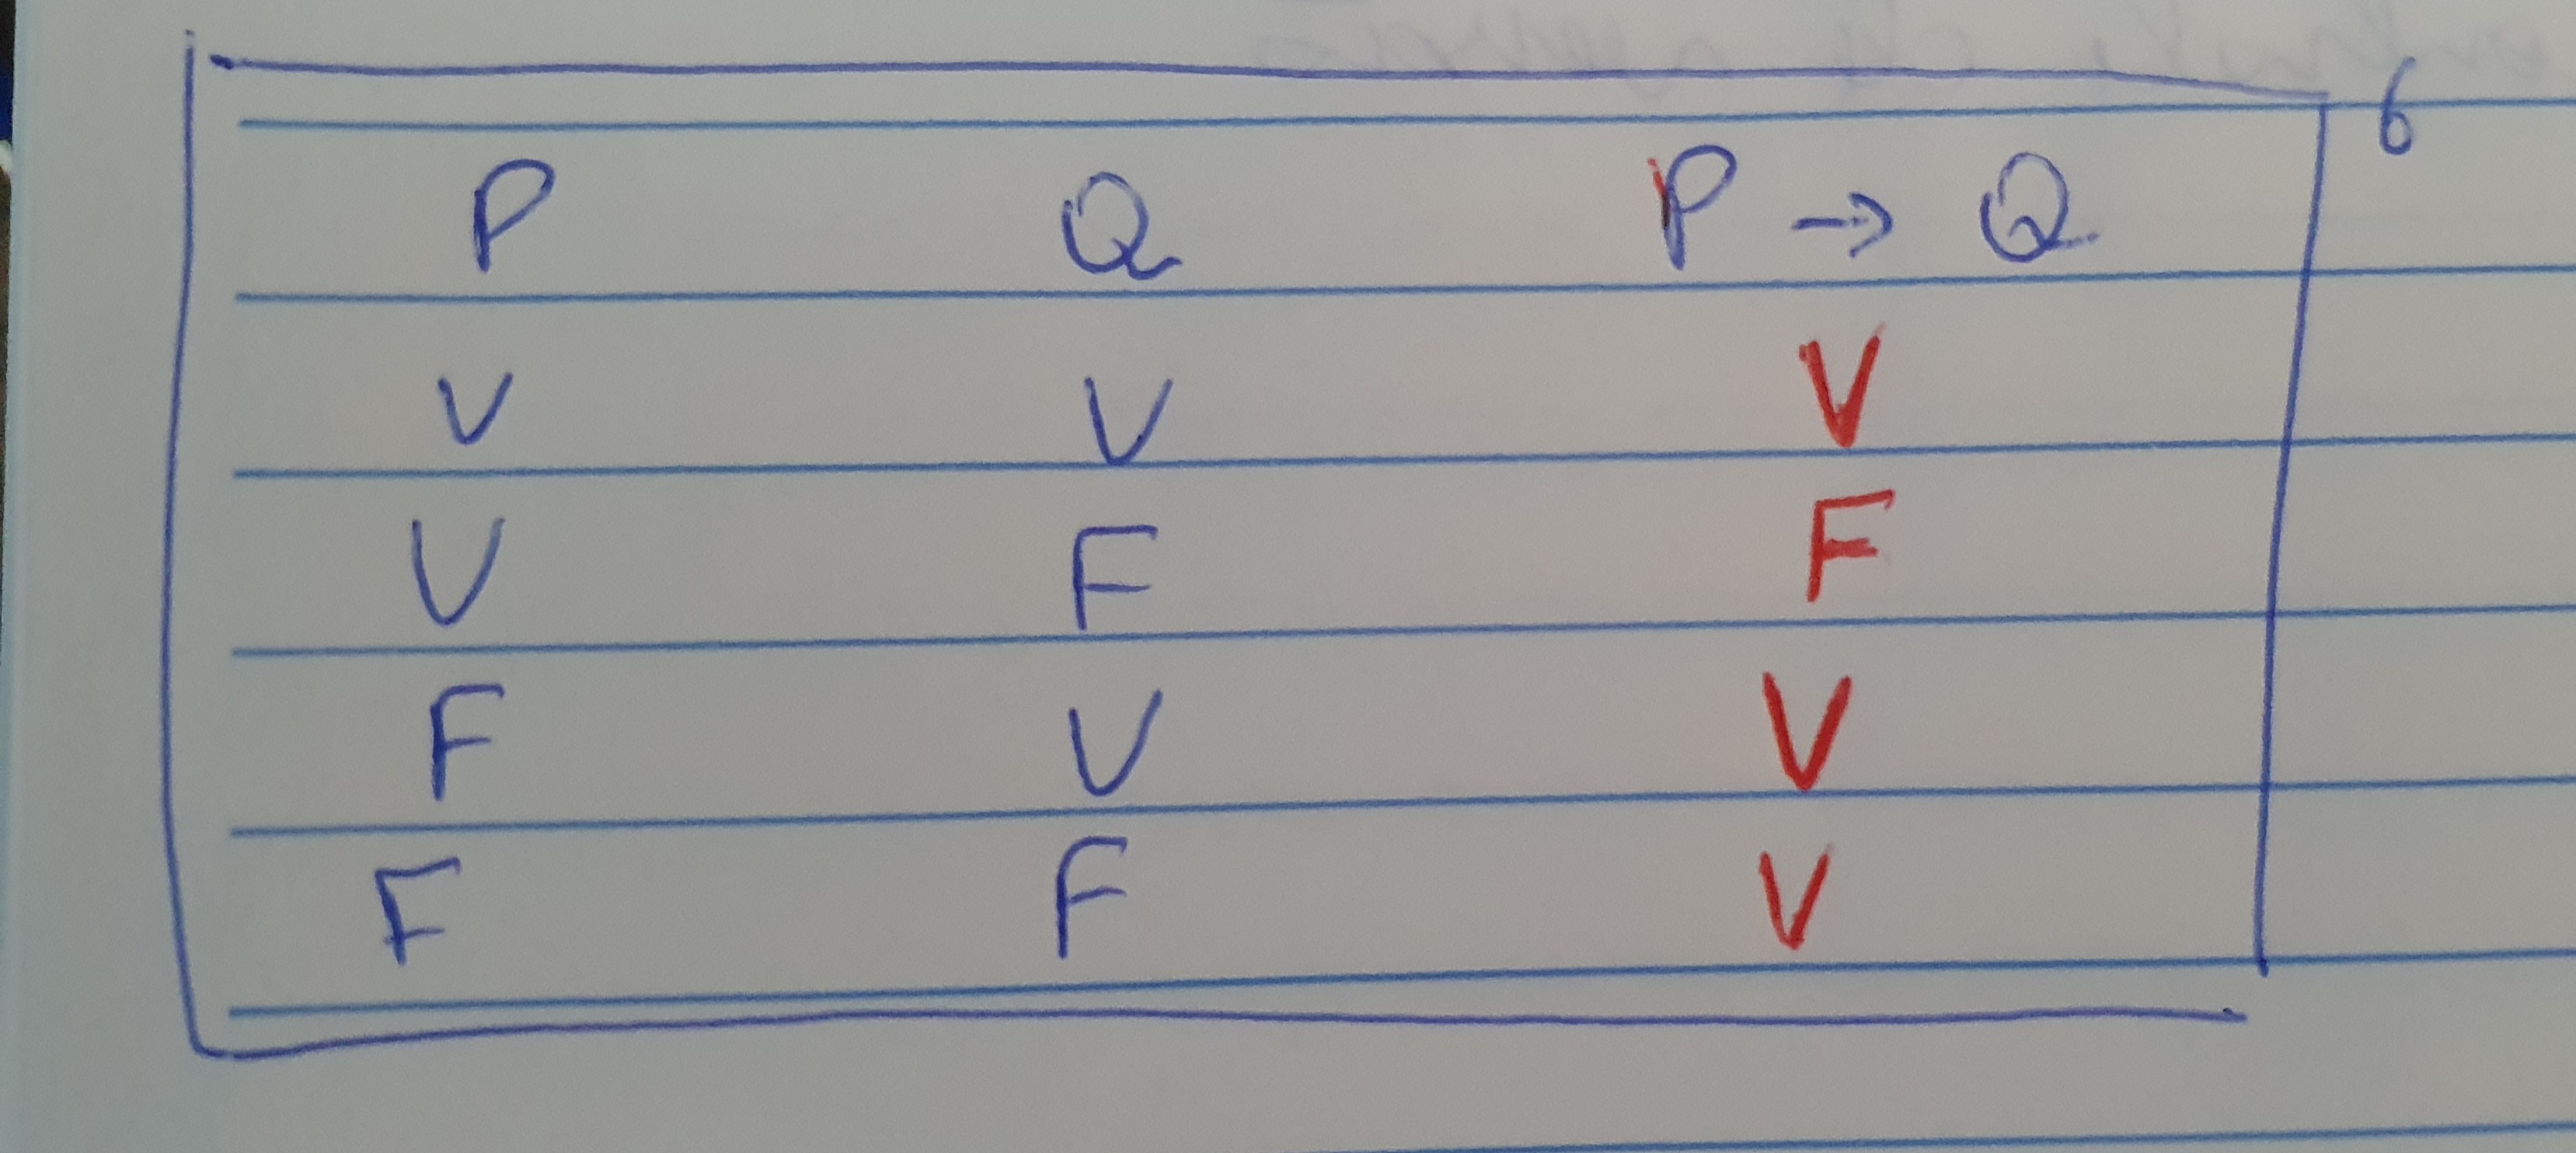 6
P Q P → Q
V V V
V F F
F V V
F F V